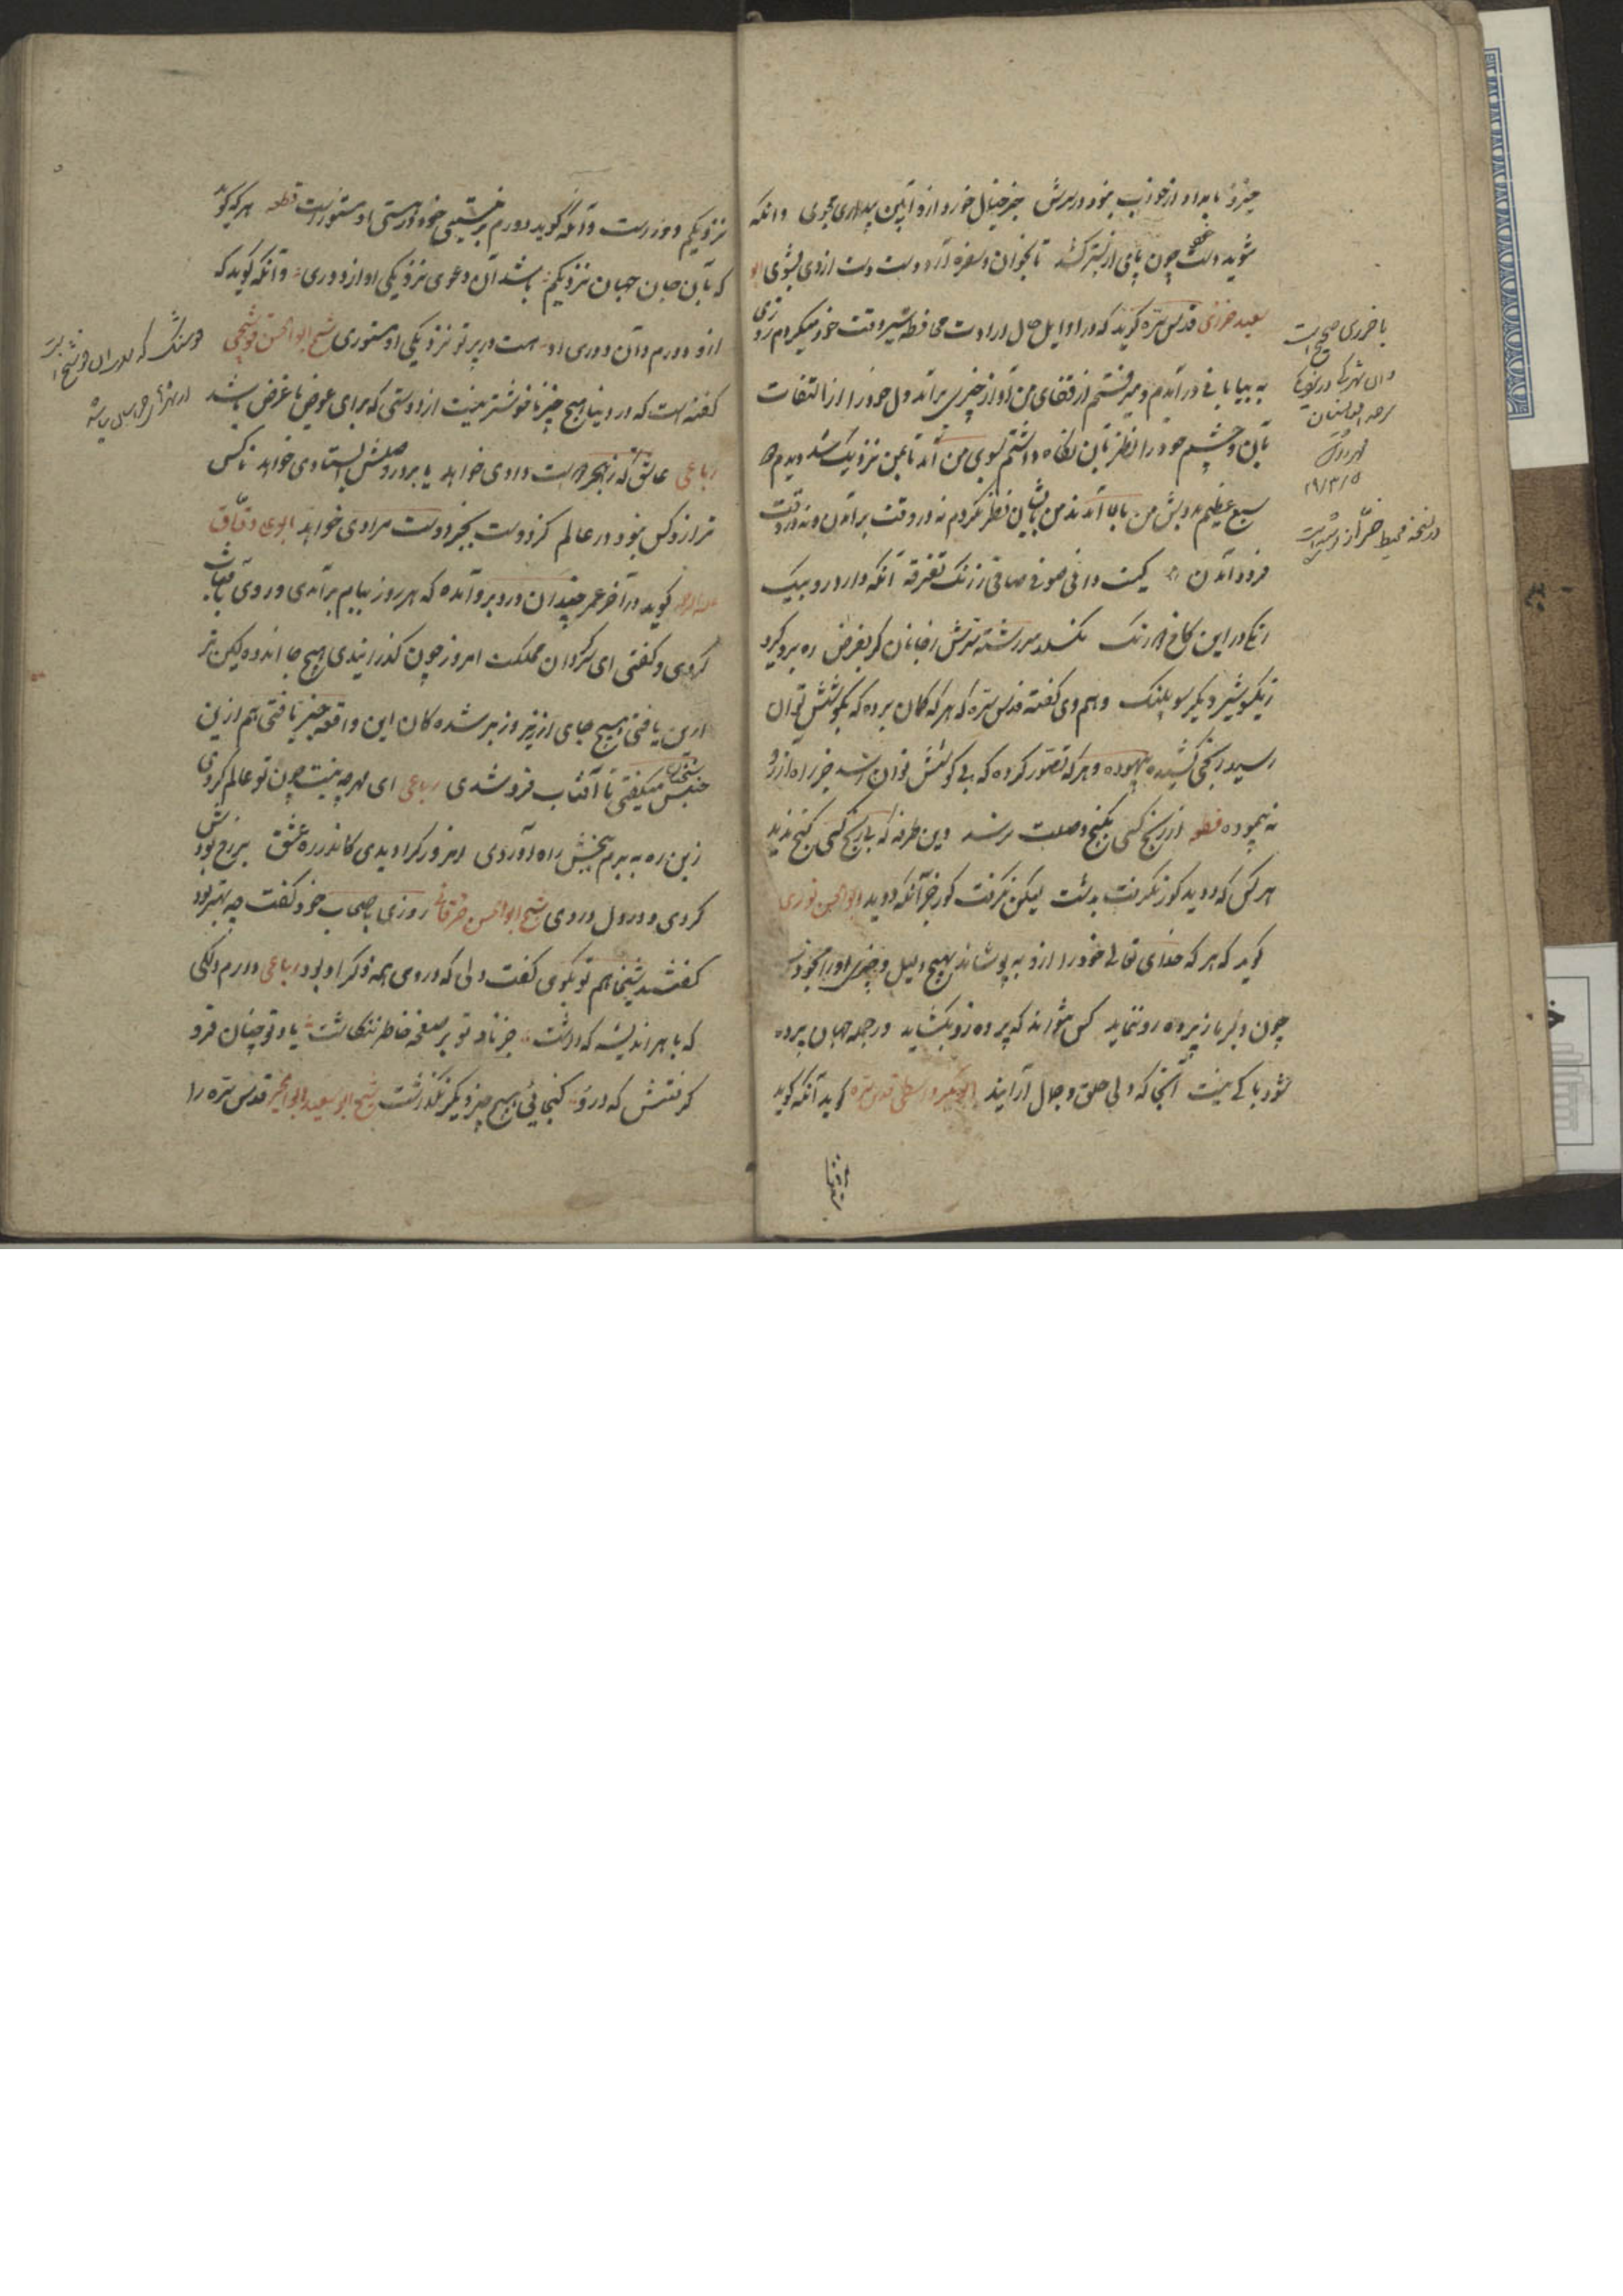 خیزد بامداد از خواب نبود در سرش جز خیال خورد ازو آیین بیداری مجوی وانکه
شوید دست چون پای از بستر کشد تا بخوان و سفره آرد دست دست از وی بشوی ابو
سعید خرازی قدس سره گوید که در اوایل حال ارادت محافظت سر وقت خود میکردم روزی
به بیابانی در آمدم و میرفتم از قفای من آواز چیزی برآمد دل خود را از التفات
بآن و چشم خود را از نظر بآن نگاه داشتم بسوی من آمد تا بمن نزدیک شد دیدم که
سبع عظیم بدوش من بالا آمدند من بایشان نظر نکردم نه در وقت برآمدن و نه در وقت
فرود آمدن کیست دانی صوفی صافی ز زنگ تفرقه آنکه دارد رو بیک
رنگی در این کاخ دو رنگ نگسلد سررشته سرش ز جانان گر بفرض ره برو گیرد
ز یکسو شیر و دیگر سو پلنگ و هم وی گفته قدس سره که هر که گمان برده که بکوشش توان
رسید رنجی کشیده بیهوده و هر که تصور کرده که بی کوشش توان رسید جز راه آرزو
نه پیموده قطعه از رنج کسی بگنج وصلت نرسد وین طرفه که بی رنج کسی گنج ندید
هر کس که دوید گور نگرفت بدشت لیکن نگرفت گور جز آنکه دوید ابوالحسن نوری
گوید که هر که خدای تعالی خود را ازو بپوشاند هیچ دلیل و خبر او را بخود نرساند
چون دلبر ما ز پرده رو ننماید کس نتواند که پرده زو بگشاید ور جمله جهان پرده
شود باکی نیست آنجا که ولی جلوه جمال آراید ابوبکر واسطی قدس سره گوید آنکه گوید
نزدیکم
با خرزی صحیح است
۱۹/۳/۵
در نسخه محیط خراز
نزدیکم دورست و آنکه گوید دورم بر نیستی خود در هستی او مستورست قطعه هر که گوید
که بآن جان جهان نزدیکم باشد آن دعوی نزدیکی او از دوری وآنکه گوید که
ازو دورم وآن دوری او هست در پرتو نزدیکی او مستوری شیخ ابوالحسن قوشنجی
گفته است که در دنیا هیچ چیز ناخوشتر نیست از دوستی که برای عوض یا غرض باشد
رباعی عاشق که ز هجر دوست دادی خواهد یا بر در وصلش ایستادی خواهد ناکس
تر ازو کس نبود در عالم کز دوست بجز دوست مرادی خواهد ابوعلی دقاق
علیه الرحمه گوید در آخر عمر چندان درد برو آمده که هر روز ببام برآمدی و روی بآفتاب
کردی و گفتی ای سرگردان مملکت امروز چون گذراندی هیچ جا اندوهگین تر
ازین یافتی و هیچ جای از زیر و زبر شده گان این واقعه خبر یافتی هم ازین
جنس سخنان میگفتی تا آفتاب فرو شدی رباعی ای مهر چه نیست چون تو عالم گردی
زین ره به برم بخش راه آوردی امروز کرا دیدی کاندر ره عشق بر رخ بودش
گردی و در دل دردی شیخ ابوالحسن خرقانی روزی باصحاب خود گفت چه بهتر بود
گفتند شیخا هم تو بگوی گفت دلی که در وی همه ذکر او بود رباعی دارم دلکی
که با هر اندیشه که داشت جز یاد تو بر صفحه خاطر ننگاشت یاد تو چنان فرو
گرفتش که درو گنجایی هیچ چیز دیگر نگذاشت شیخ ابوسعید ابوالخیر قدس سره را